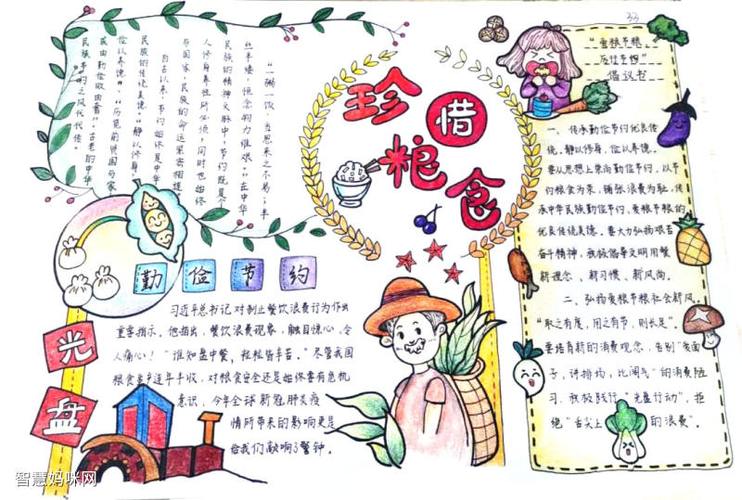 珍惜
粮食
"一粥一饭，当思来之不易；半
丝半缕，恒念物力维艰。"在中华
民族的精神文脉中，节约既是个
人修身养性所必须，同时也始终
与国家、民族的命运紧密相连。
自古以来，节约始终是中华
民族的传统美德。"静以修身，
俭以养德"、"历览前贤国与家，
成由勤俭败由奢"，古老的中华
民族节约之风代代传。
勤俭节约
习近平总书记对制止餐饮浪费行为作出
重要指示。他指出，餐饮浪费现象，触目惊心、令
人痛心！"谁知盘中餐，粒粒皆辛苦。"尽管我国
粮食生产连年丰收，对粮食安全还是始终要有危机
意识，今年全球新冠肺炎疫
情所带来的影响更是
给我们敲响了警钟。
光
盘
33
"爱粮节粮
厉行节约"
倡议书
一、传承勤俭节约优良传
统。静以修身，俭以养德。
要从思想上崇尚勤俭节约，以节
约粮食为荣，铺张浪费为耻。传
承中华民族勤俭节约、爱粮节粮的
优良传统美德。要大力弘扬艰苦
奋斗精神，积极倡导文明用餐
新理念、新习惯、新风尚。
二、弘扬爱粮节粮社会新风。
"取之有度，用之有节，则长足"。
要培育新的消费观念，告别"爱面
子，讲排场，比阔气"的消费陋
习。积极践行"光盘行动"，拒
绝"舌尖上的浪费"。
智慧妈咪网